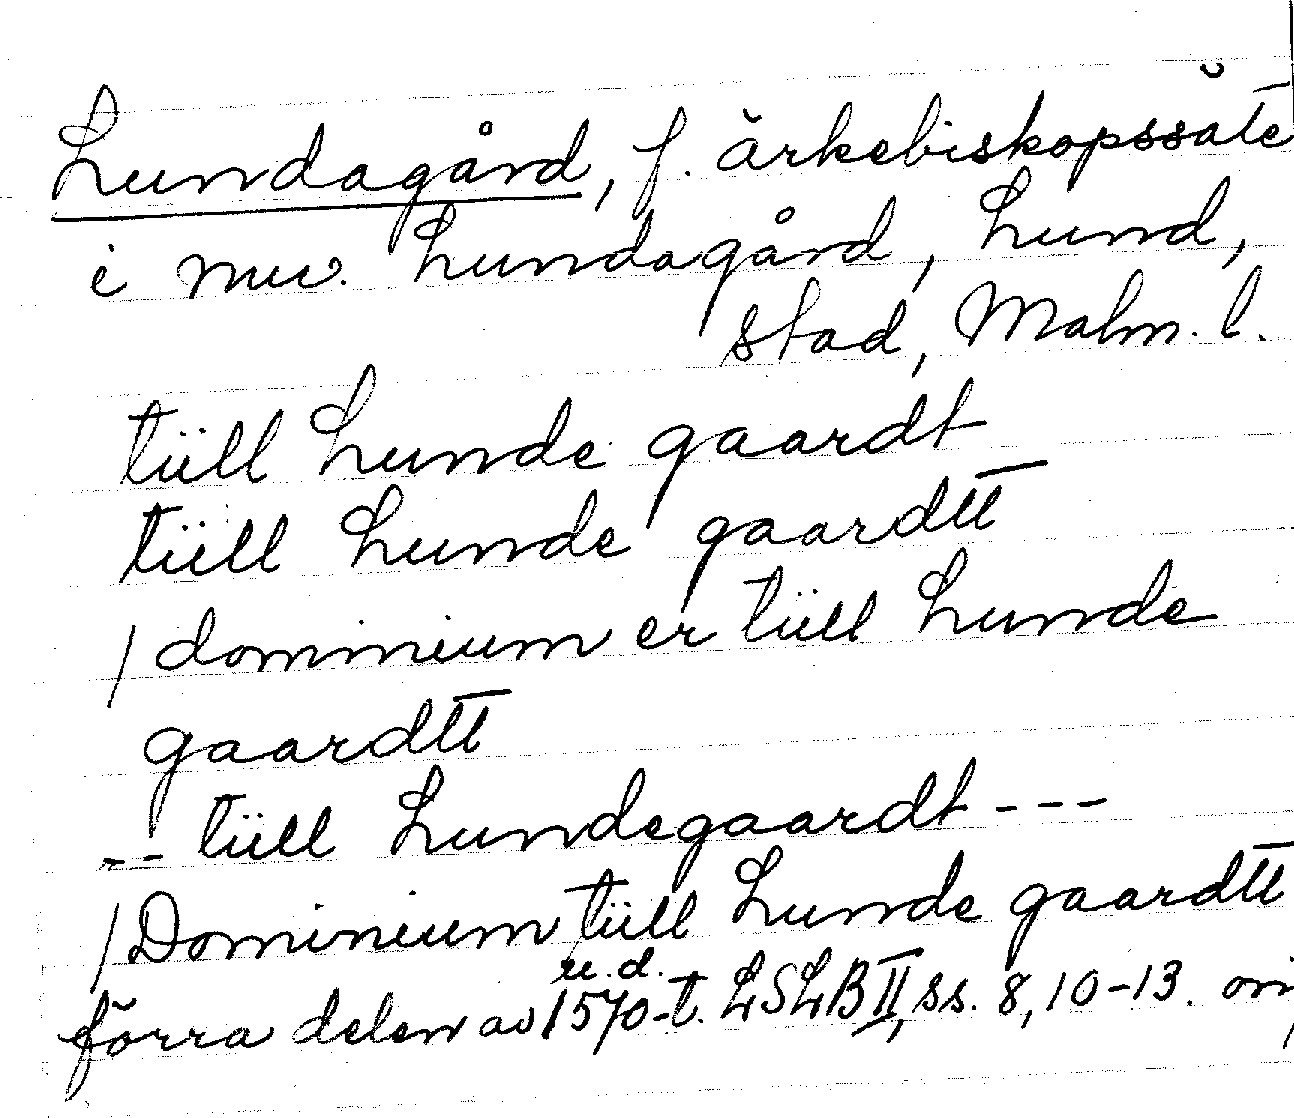 Lundagård, f. ärkebiskopssäte
i nuv. Lundagård, Lund,
stad, Malm. l.
tüll Lunde gaardt
tüll Lunde gaardtt
/ dominium er tüll Lunde
gaardtt
-- tüll Lundegaardt ---
/ Dominium tüll Lunde gaardtt
u.d.
förra delen av 1570-t. LSLB II, ss. 8, 10-13. ori